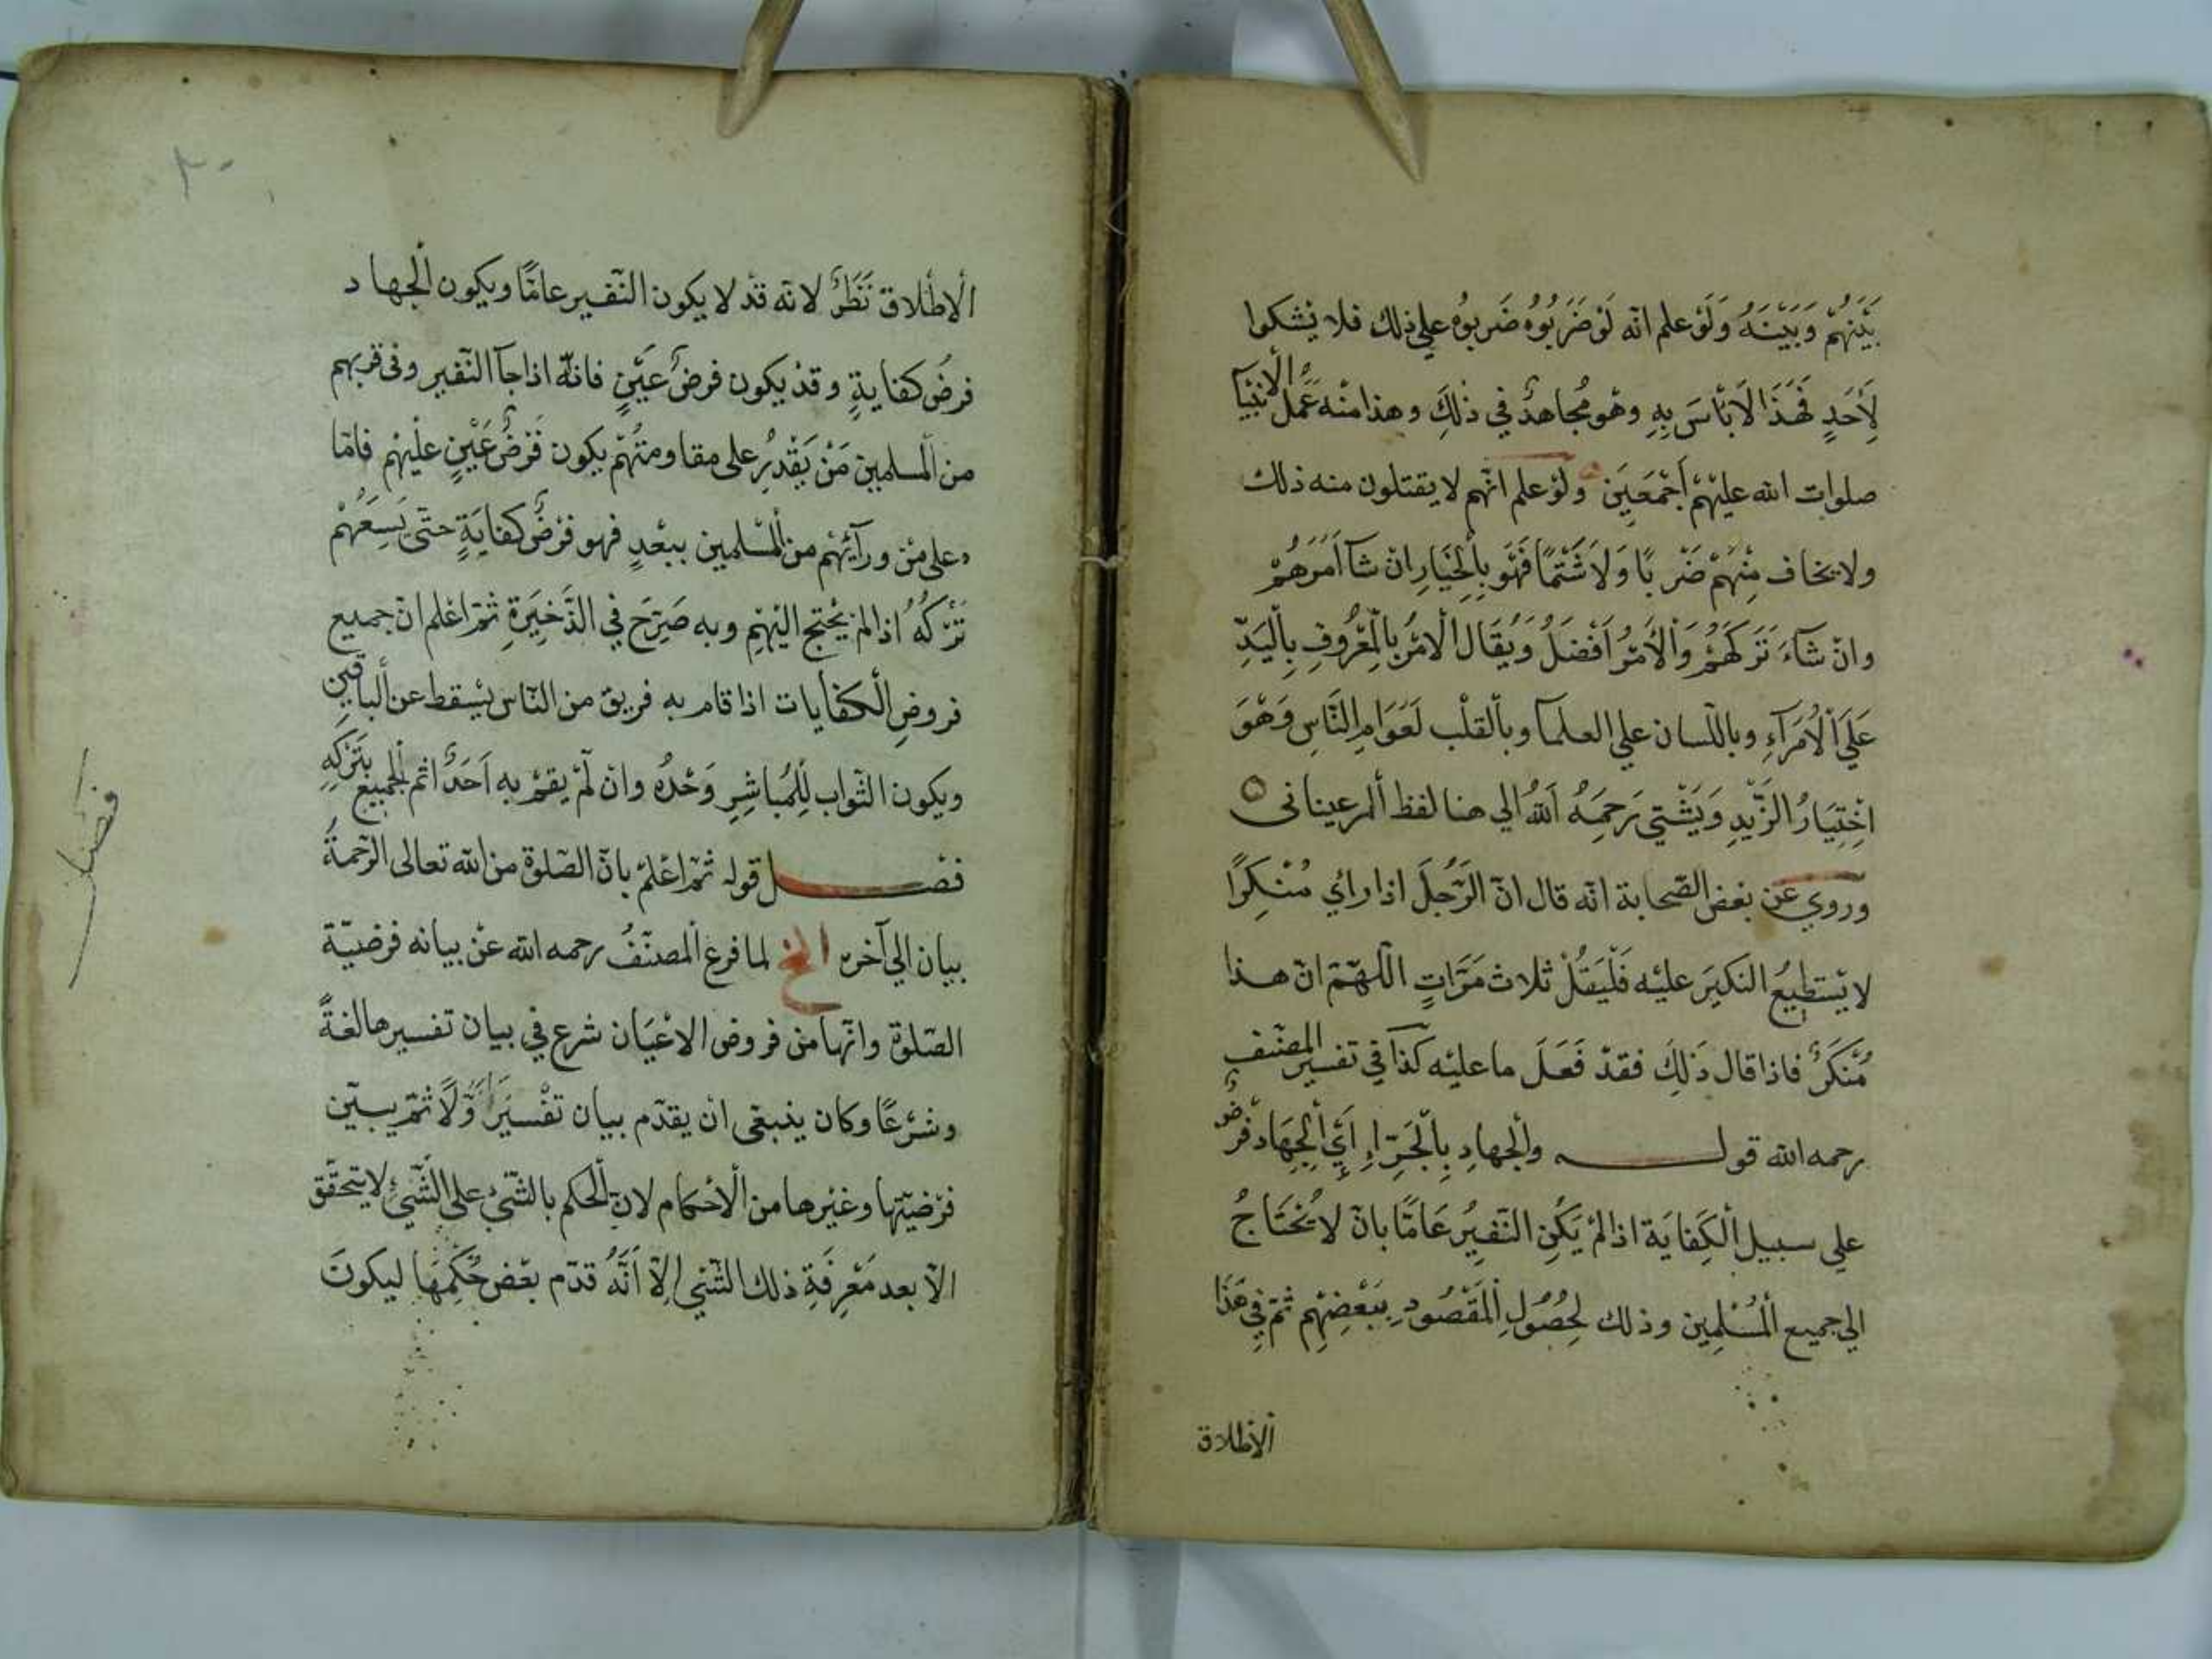 بَيْنَهُمْ وَبَيْنَهُ وَلَوْ علم انّه لَوْ ضَرَبُوُه ضَربوُه علي ذلك فلا يَشكوا
لِأَحَدٍ فَهَذَا لَا بَأسَ بِهِ وهُو مُجاهدٌ في ذلِكَ وهذا منْه عَمَلُ الانبْيَآ
صلوات الله عليْهِمْ اَجْمَعَينَ ولَوْ علم انّهم لا يقتلون منه ذلك
ولا يخاف مِنْهُمْ ضَرْبًا وَلَا شَتْمًا فَهُوَ بِالْخِيَارِ انْ شآ اَمَرَهُمْ
وانْ شآءَ تَرَكَهُمْ وَالْأَمْرُ اَفْضَلُ وَيُقَال الْامْرُ بِالْمَعْرُوفِ بِالْيَدِّ
عَلَي الْاُمَرَآءِ وباللّسان علي العلمآ وبالْقلْب لَعَوَامِ النَّاسِ وَهْوَ
اخْتِيَارُ الزَّيْدِ وَيَشْتِي رَحِمَهُ اَللهُ الي هنا لفظ المرعينانى
وروي عن بعْض الصّحابة انّه قال انّ الرّجُلَ اذا رائ مُنْكِرًا
لا يَسْتطيعُ النكيَر عليْه فَلْيَقُلْ ثلاث مَرَّاتٍ اللّهُمّ انّ هذا
مُنْكَرٌ فاذا قال ذَلِكَ فقدْ فَعَلَ ما عليْه كَذَا في تفسير المصنّف
رحمه الله قوله والجهادِ بِالْجَرّاِ اَيِ الْجِهَاد فرْضٌ
علي سبيل الْكِفايَة اذا لمْ يَكُنِ النّفيِرُ عَامًّا بانْ لا يُحْتَاجُ
الي جميع الْمُسْلِمِين وذلك لِحُصُولِ الْمَقْصُودِ بِبَعْضِهِم ثمّ فِي هَذَا
الاطلاق
٢٠
الْاطْلاق نَظَرٌ لانّه قدْ لا يكون النّفير عامًّا ويكون الْجهاد
فرضُ كفايةٍ وقدْ يكون فرضُ عيْنٍ فانّهُ اذا جآ النّفير وفى قربهم
من الْمسلمين مَنْ يَقْدِرُ على مقاومتهُمْ يكون فَرْضُ عَيْنٍ عليْهم فامّا
على منْ ورآئِهُم من الْمسْلمين ببعْدٍ فهو فرْضُ كفايَةٍ حتّى يَسَعَهُمْ
تَرْكُهُ اذا لمْ يُحْتج اليْهِم وبه صَرَّحَ في الذَّخِيرَةِ ثمّ اعْلم انّ جميع
فروضِ الْكفايات اذا قام به فريق من النّاس يسْقط عن الباقين
ويكون الثّواب لِلْمُباشِرِ وَحْدُه وانْ لمْ يقمْ به اَحَدٌ اثم الجميع بتَرْكِهِ
فصْل قوله ثمّ اعْلمْ بانّ الصّلوة من الله تعالى الرّحمةُ
بيان الي آخره الخ لما فرغ الْمصنّفُ رحمه الله عنْ بيانه فرضيّة
الصّلوة وانّها من فروض الاعْيَان شرع في بيان تفسيرها لغةً
وشرْعًا وكان ينبغى انْ يقدّم بيان تفْسيَر اَوّلًا ثمّ يبيّن
فرْضيّتها وغيْرها من الْأحكام لانّ الْحكم بالشّيْ على الشّيْ لا يتحقّق
الّا بعد مَعْرِفَةِ ذلك الشّيْ الّا اَنّهُ قدّم بعْض حُكْمِهَا ليكونَ